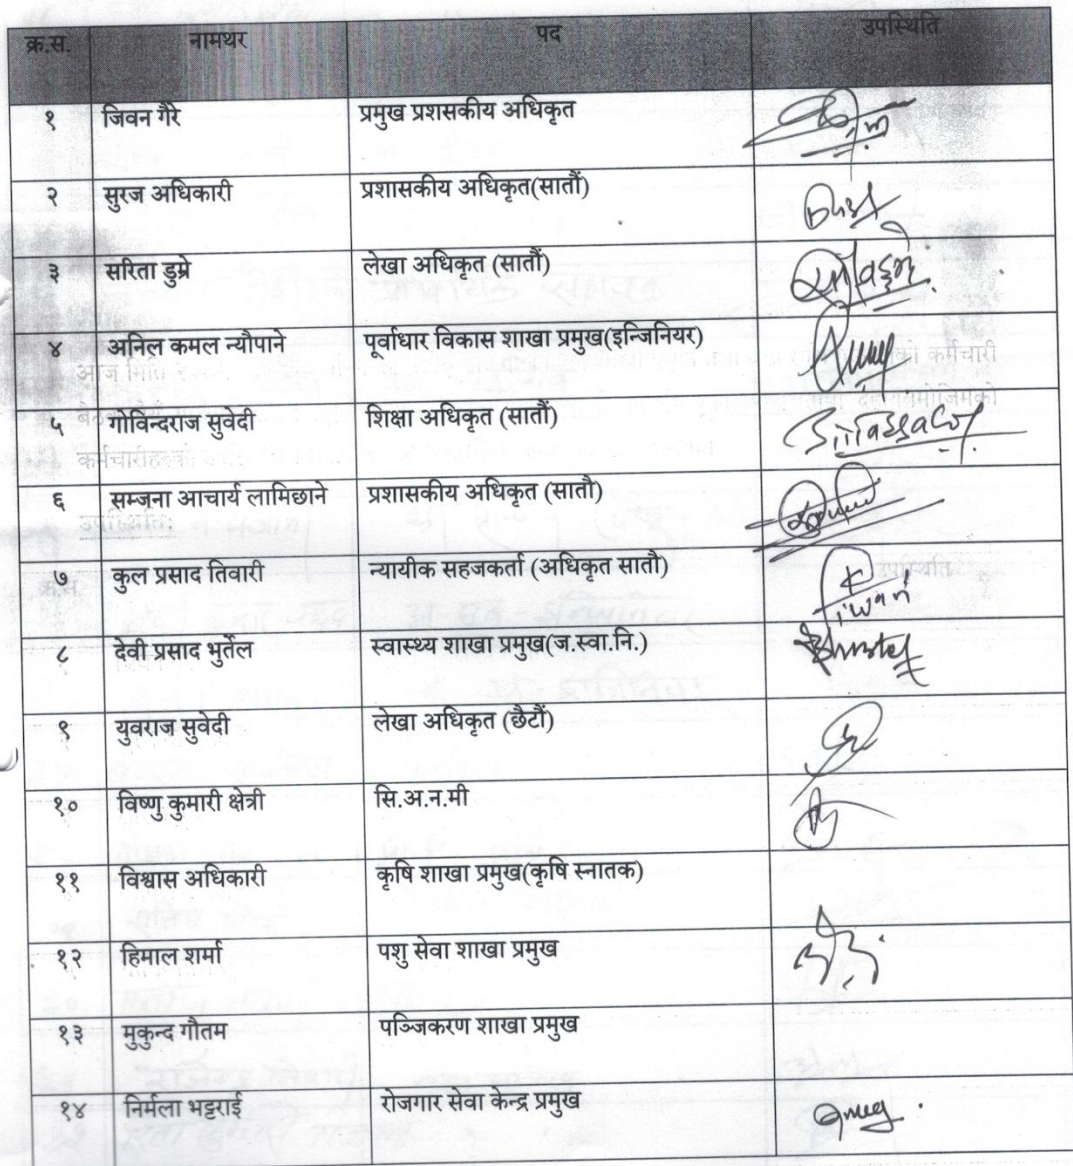 क्र.स. नामथर पद उपस्थिति
१ जिवन गैरे प्रमुख प्रशसकीय अधिकृत
२ सुरज अधिकारी प्रशासकीय अधिकृत(सातौं)
३ सरिता डुम्रे लेखा अधिकृत (सातौं)
४ अनिल कमल न्यौपाने पूर्वाधार विकास शाखा प्रमुख(इन्जिनियर)
५ गोविन्दराज सुवेदी शिक्षा अधिकृत (सातौं)
६ सम्जना आचार्य लामिछाने प्रशासकीय अधिकृत (सातौ)
७ कुल प्रसाद तिवारी न्यायीक सहजकर्ता (अधिकृत सातौ)
८ देवी प्रसाद भुर्तेल स्वास्थ्य शाखा प्रमुख(ज.स्वा.नि.)
९ युवराज सुवेदी लेखा अधिकृत (छैटौं)
१० विष्णु कुमारी क्षेत्री सि.अ.न.मी
११ विश्वास अधिकारी कृषि शाखा प्रमुख(कृषि स्नातक)
१२ हिमाल शर्मा पशु सेवा शाखा प्रमुख
१३ मुकुन्द गौतम पञ्जिकरण शाखा प्रमुख
१४ निर्मला भट्टराई रोजगार सेवा केन्द्र प्रमुख